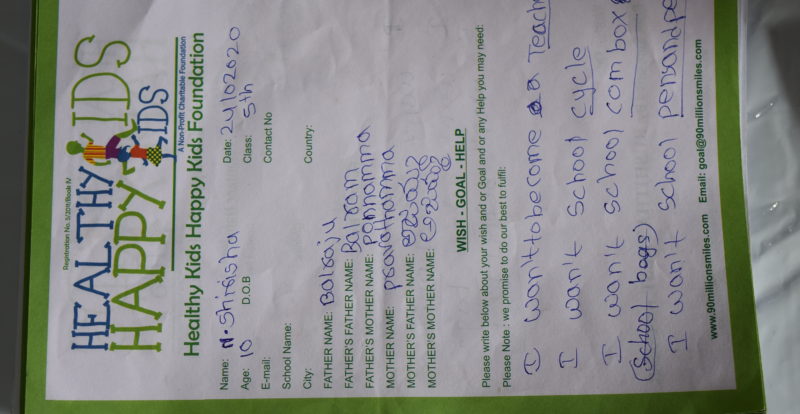 Registration No. 5/2011/Book IV
HEALTHY KIDS
HAPPY KIDS
A Non-Profit Charitable Foundation
Healthy Kids Happy Kids Foundation
Name: N. Shirisha Date: 24/02020
Age: 10 D.O.B Class: 5th
E-mail: Contact No
School Name:
City: Country:
FATHER NAME: Balraju
FATHER'S FATHER NAME: Balram
FATHER'S MOTHER NAME:
MOTHER NAME:
MOTHER'S FATHER NAME:
MOTHER'S MOTHER NAME:
WISH - GOAL - HELP
Please write below about your wish and or Goal and or any Help you may need:
Please Note : we promise to do our best to fulfil:
I wan't to become a Teach
I wan't School cycle
I wan't School combox
(School bags)
I wan't School pensandpe
www.90millionsmiles.com Email: goal@90millionsmiles.com